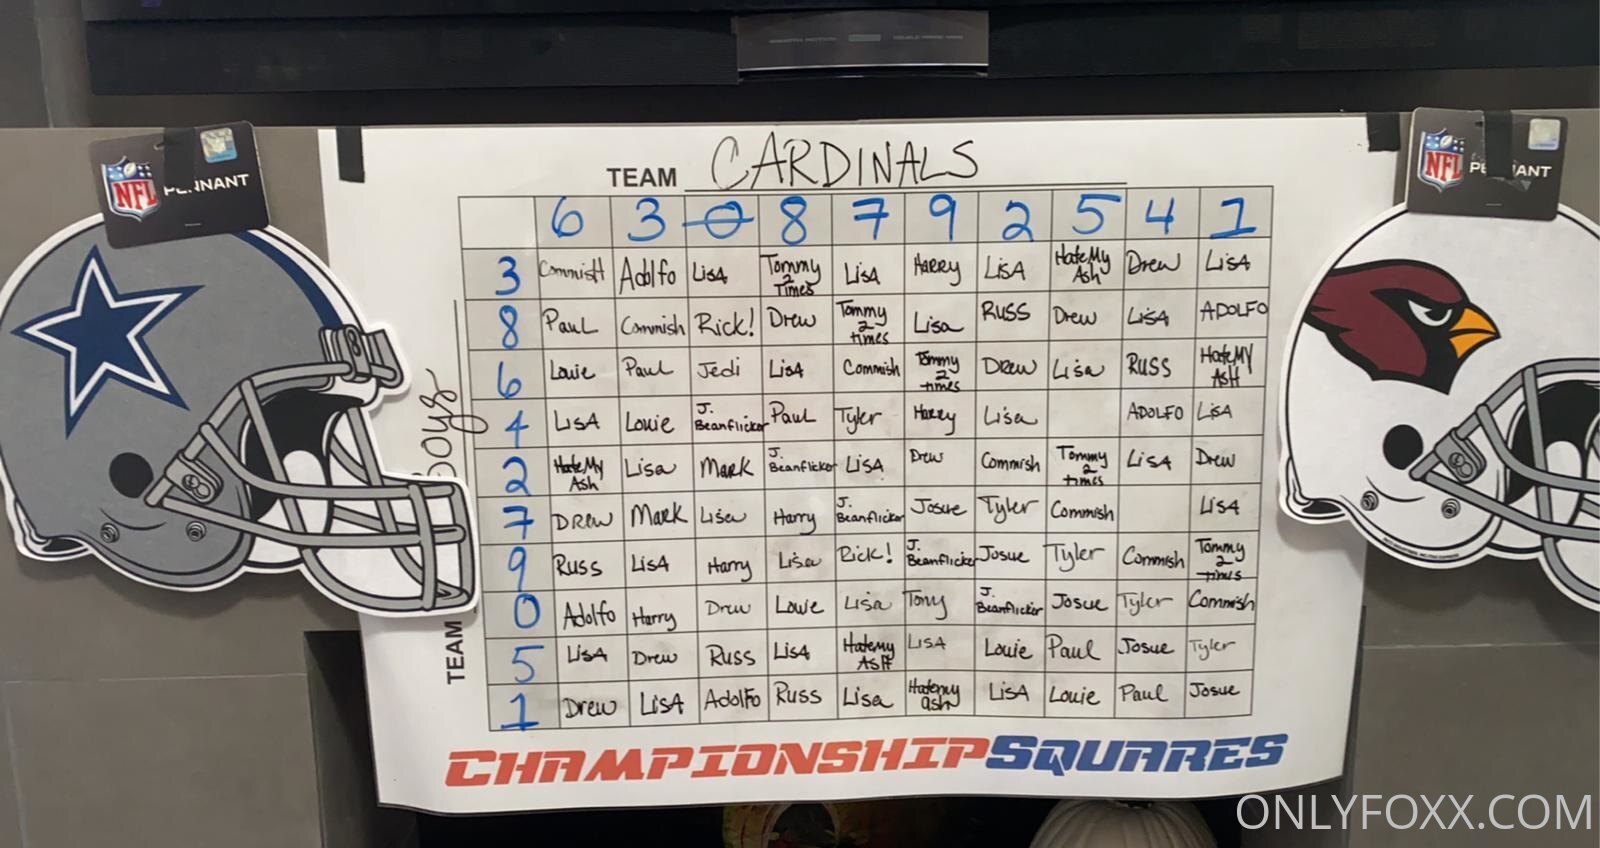 NFL
PENNANT
NFL
TEAM CARDINALS
6 3 0 8 7 9 2 5 4 1
3 Commish Adolfo LisA Tommy 2 Times LisA HARRY LisA Hate My Ash Drew LisA
8 Paul Commish Rick! Drew Tommy 2 times Lisa RUSS Drew LisA ADOLFO
6 Louie Paul Jedi LisA Commish Tommy 2 times Drew Lisa RUSS Hate MY ASH
4 LisA Louie J. Beanflicker Paul Tyler Harry Lisa ADOLFO LisA
2 Hate My Ash Lisa Mark J. Beanflicker LisA Drew Commish Tommy 2 times LisA Drew
7 Drew Mark Lisa Harry J. Beanflicker Josue Tyler Commish LisA
9 RUSS LisA Harry Lisa Rick! J. Beanflicker Josue Tyler Commish Tommy 2 times
0 Adolfo Harry Drew Louie Lisa Tony J. Beanflicker Josue Tyler Commish
5 LisA Drew Russ LisA Hate My ASH LisA Louie Paul Josue Tyler
1 Drew LisA Adolfo Russ Lisa Hate my ash LisA Louie Paul Josue
TEAM
CHAMPIONSHIPSQUARES
ONLYFOXX.COM